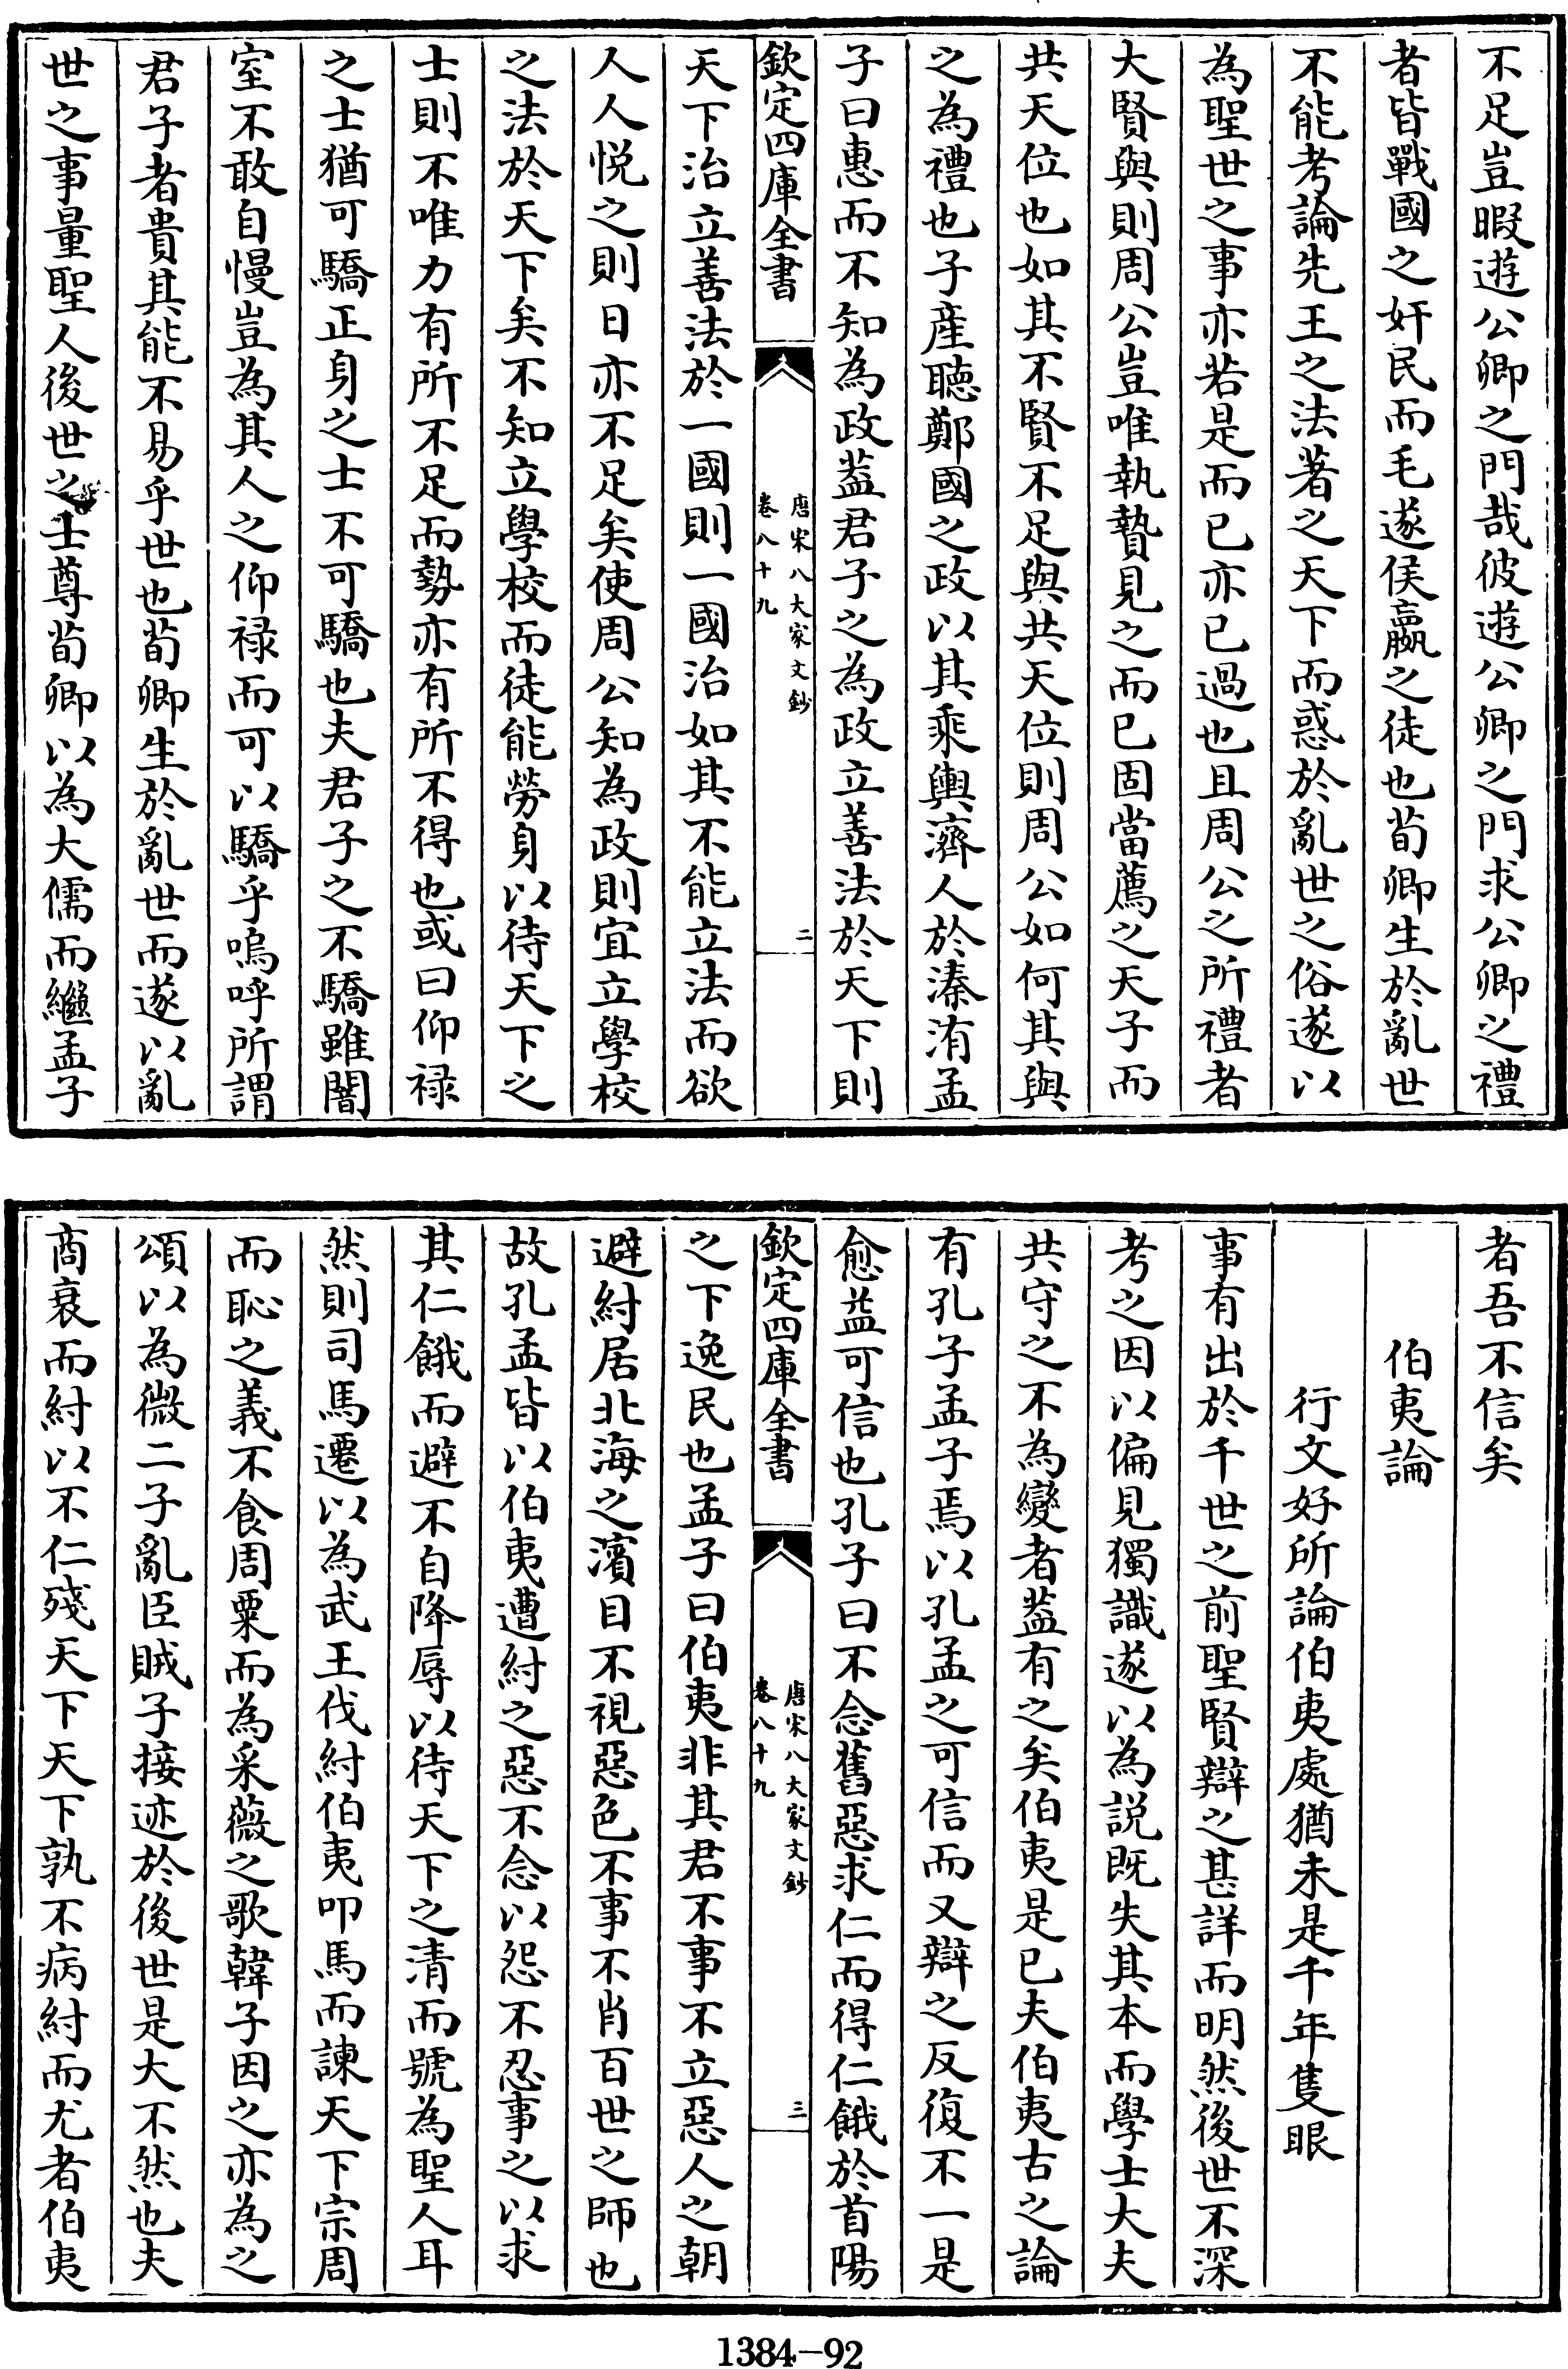 不足豈暇遊公卿之門哉彼遊公卿之門求公卿之禮
者皆戰國之奸民而毛遂侯嬴之徒也荀卿生於亂世
不能考論先王之法著之天下而惑於亂世之俗遂以
為聖世之事亦若是而已亦已過也且周公之所禮者
大賢與則周公豈唯執贄見之而已固當薦之天子而
共天位也如其不賢不足與共天位則周公如何其與
之為禮也子產聽鄭國之政以其乘輿濟人於溱洧孟
子曰惠而不知為政葢君子之為政立善法於天下則
欽定四庫全書
唐宋八大家文鈔
卷八十九
二
天下治立善法於一國則一國治如其不能立法而欲
人人悅之則日亦不足矣使周公知為政則宜立學校
之法於天下矣不知立學校而徒能勞身以待天下之
士則不唯力有所不足而勢亦有所不得也或曰仰祿
之士猶可驕正身之士不可驕也夫君子之不驕雖闇
室不敢自慢豈為其人之仰祿而可以驕乎嗚呼所謂
君子者貴其能不易乎世也荀卿生於亂世而遂以亂
世之事量聖人後世之士尊荀卿以為大儒而繼孟子
者吾不信矣
伯夷論
行文好所論伯夷處猶未是千年隻眼
事有出於千世之前聖賢辯之甚詳而明然後世不深
考之因以偏見獨識遂以為說既失其本而學士大夫
共守之不為變者葢有之矣伯夷是已夫伯夷古之論
有孔子孟子焉以孔孟之可信而又辯之反復不一是
愈益可信也孔子曰不念舊惡求仁而得仁餓於首陽
欽定四庫全書
唐宋八大家文鈔
卷八十九
三
之下逸民也孟子曰伯夷非其君不事不立惡人之朝
避紂居北海之濱目不視惡色不事不肖百世之師也
故孔孟皆以伯夷遭紂之惡不念以怨不忍事之以求
其仁餓而避不自降辱以待天下之清而號為聖人耳
然則司馬遷以為武王伐紂伯夷叩馬而諫天下宗周
而恥之義不食周粟而為采薇之歌韓子因之亦為之
頌以為微二子亂臣賊子接迹於後世是大不然也夫
商衰而紂以不仁殘天下天下孰不病紂而尤者伯夷
1384-92